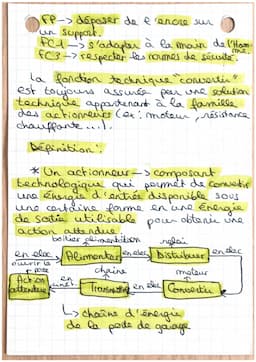 FP → déposer de l'encre sur
un support.
FC1 → s'adapter à la main de l'Homme.
FC3 → respecter les normes de sécurité.
La fonction technique "convertir"
est toujours assurée par une solution
technique appartenant à la famille
des actionneurs (ex : moteur, résistance
chauffante...).
Définition :
* Un actionneur → composant
technologique qui permet de convertir
une énergie d'entrée disponible sous
une certaine forme en une énergie
de sortie utilisable pour obtenir une
action attendue.
boîtier alimentation relai
en elec Alimenter en elec Distribuer en elec
ouvrir la porte chaîne moteur
Action attendue en Transmettre en Convertir
↳ chaîne d'énergie
de la porte de garage